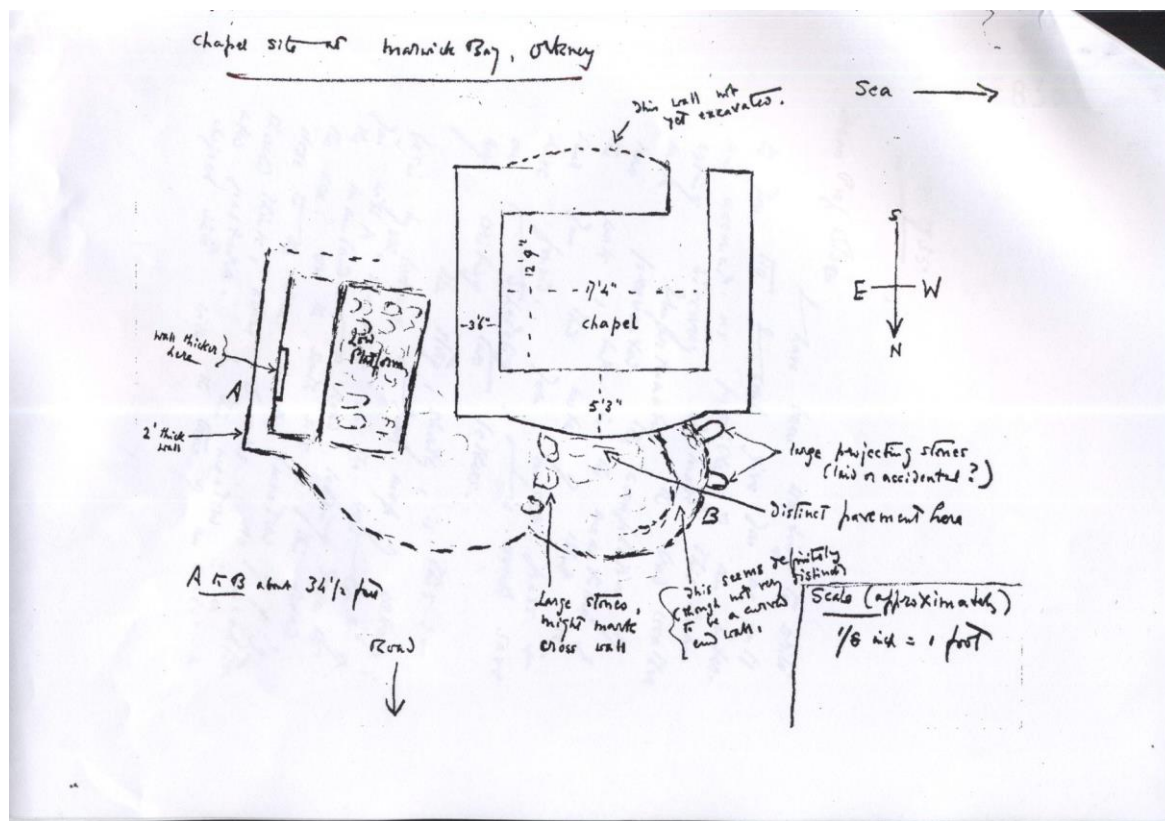 Chapel site at Marwick Bay, Orkney
This wall not
yet excavated.
Sea
S
E W
N
12'9"
17'4"
chapel
3'6"
5'3"
wall thicker
here
Low
Platform
A
2' thick
wall
large projecting stones
(laid or accidental?)
B
distinct pavement here
A to B about 34 1/2 feet
Large stones,
might mark
cross wall
This seems definitely
(though not very distinct)
to be a curved
end wall.
Road
Scale (approximately)
1/8 inch = 1 foot